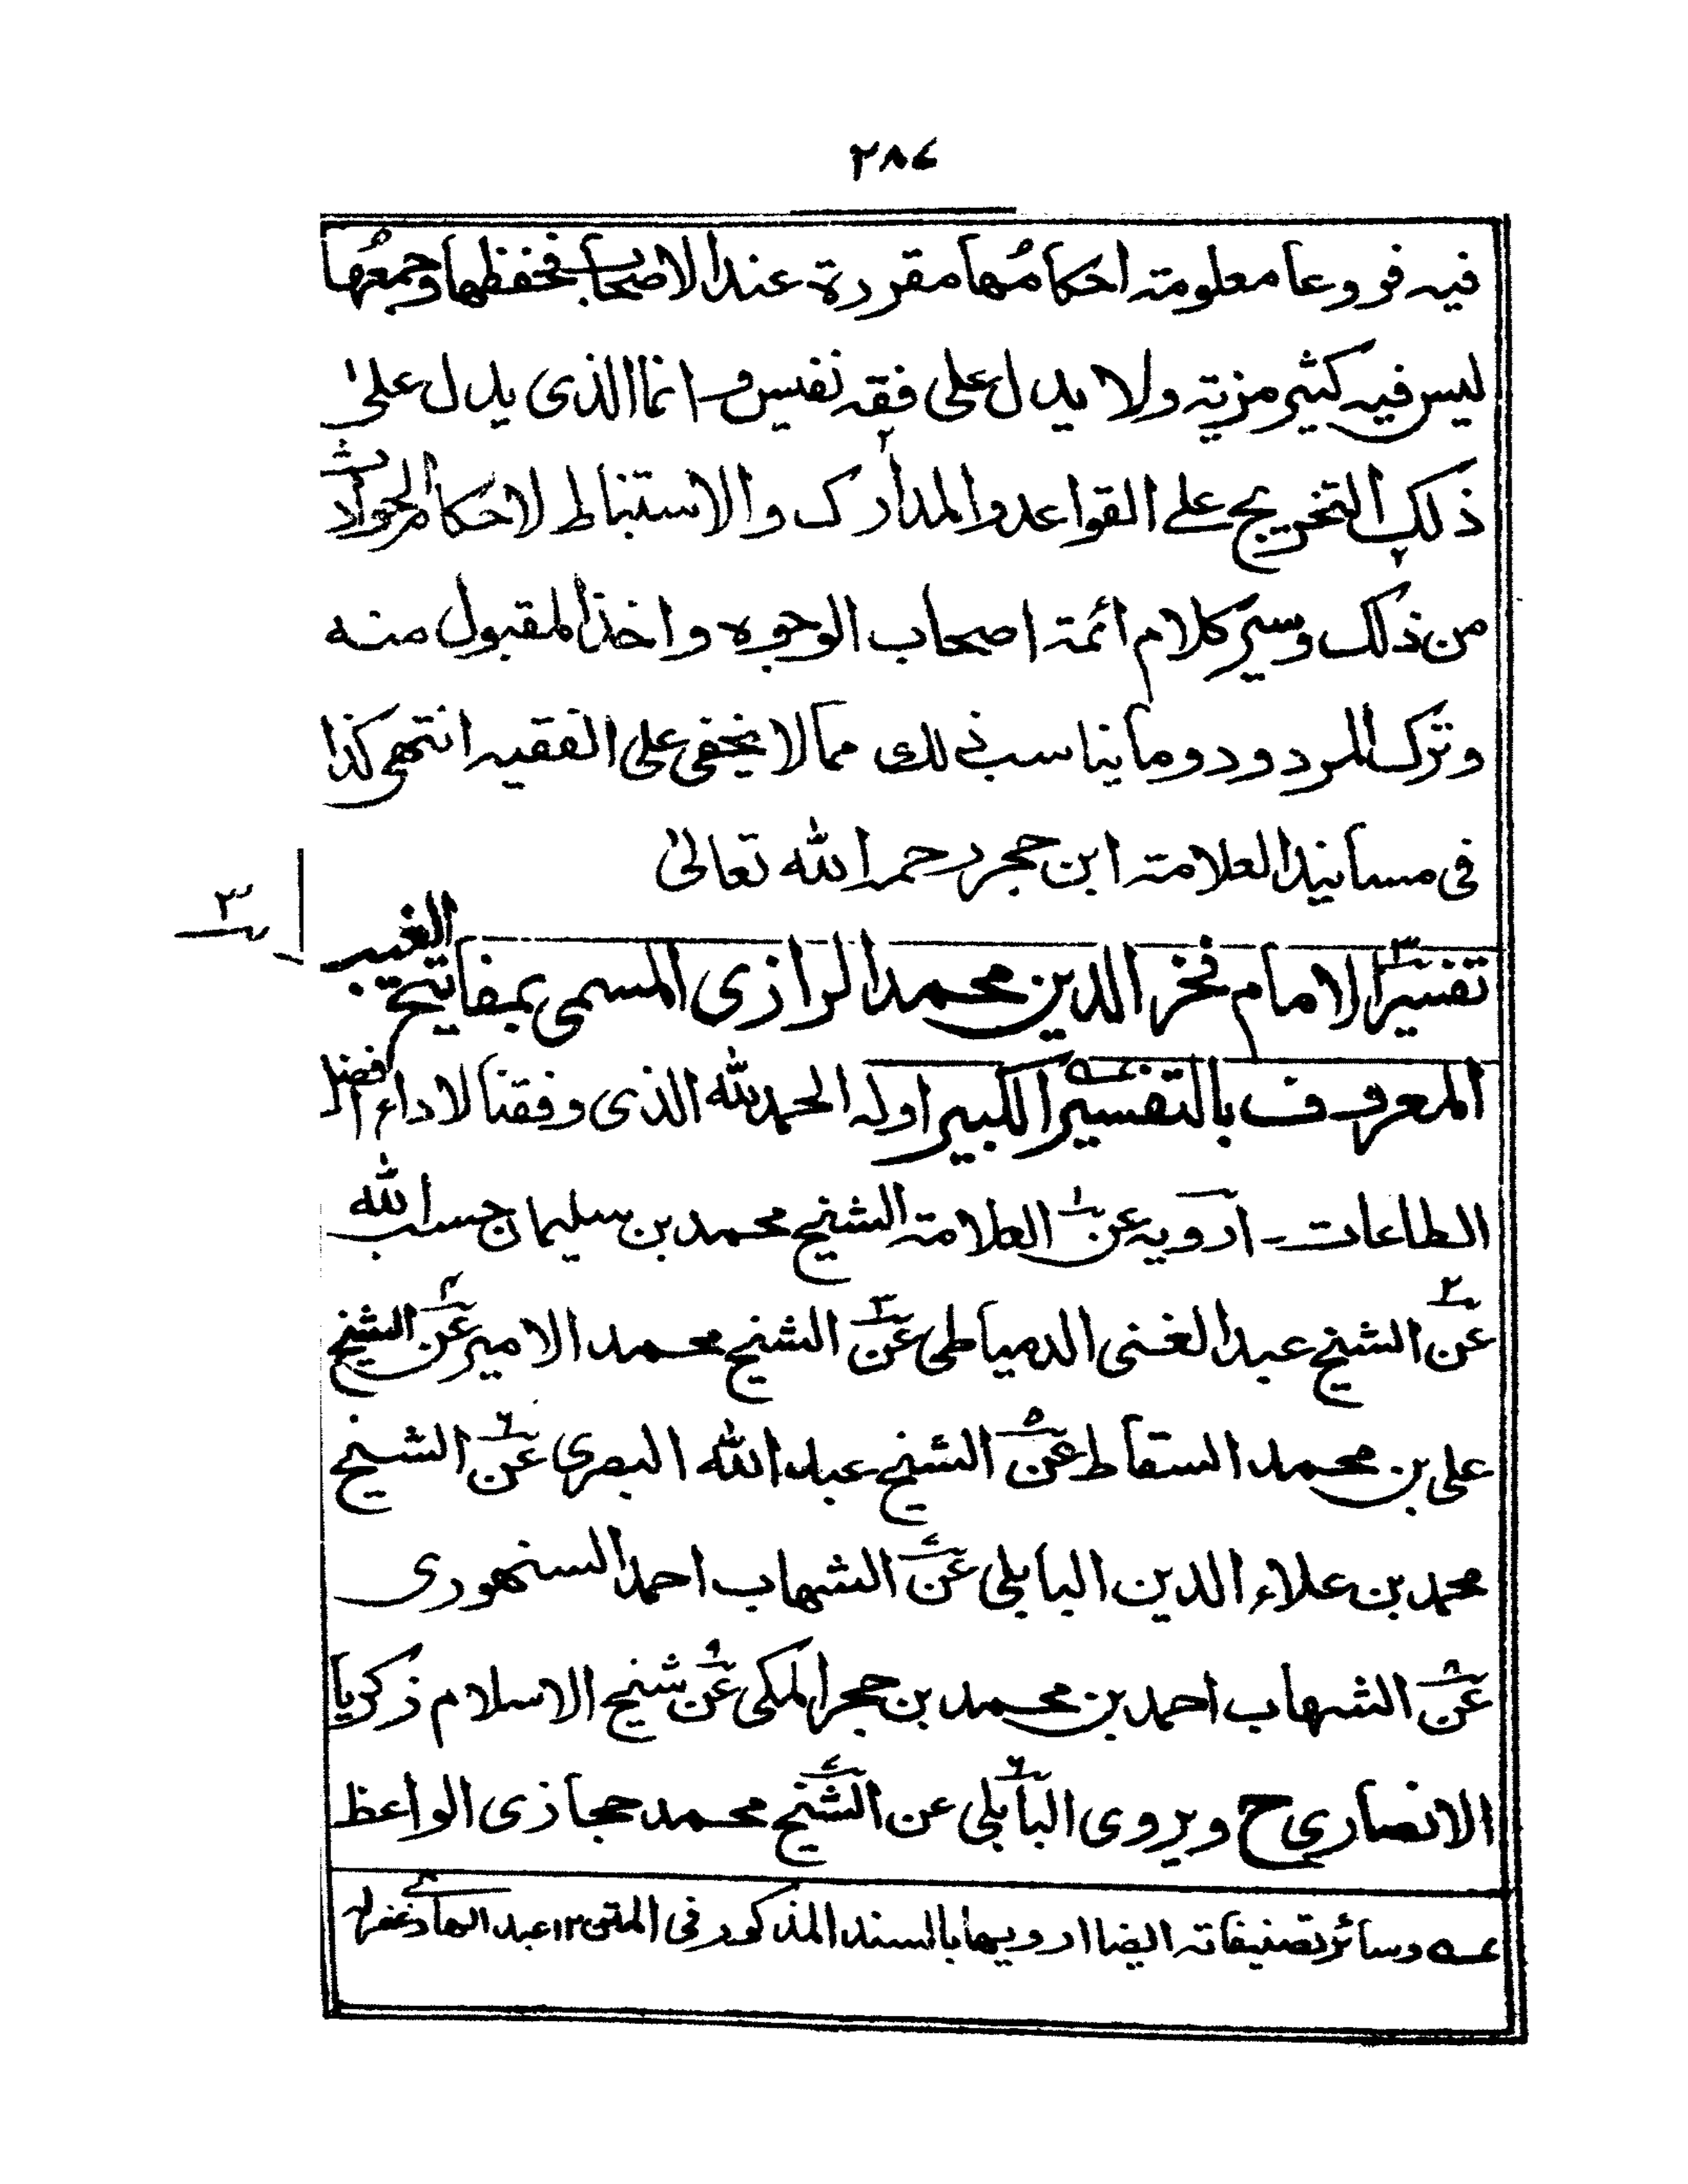 ٢٨٧
فيه فروعا معلومة احكامُها مقررة عند الاصحاب فحفظها وجمعُها
ليس فيه كثير مزية ولا يدل على فقه نفيس وانما الذى يدل على
ذلك التخريج على القواعد والمدارك والاستنباط لاحكام الحوادث
من ذلك وسير كلام ائمة اصحاب الوجوه واخذ المقبول منه
وترك المردود وما يناسب ذلك مما لا يخفى على الفقيه انتهى كذا
فى مسانيد العلامة ابن حجر رحمه الله تعالى
٣
تفسير الامام فخر الدين محمد الرازى المسمى بمفاتيح الغيب
المعروف بالتفسير الكبير اوله الحمد لله الذى وفقنا لاداء افضل
الطاعات - ارويه عن ١ العلامة الشيخ محمد بن سليمان حسب الله
عن ٢ الشيخ عبد الغنى الدمياطى عن ٣ الشيخ محمد الامير عن ٤ الشيخ
على بن محمد السقاط عن ٥ الشيخ عبد الله البصرى عن ٦ الشيخ
محمد بن علاء الدين البابلى عن ٧ الشهاب احمد السنهورى
عن ٨ الشهاب احمد بن محمد بن حجر المكى عن ٩ شيخ الاسلام زكريا
الانصارى ح ويروى البابلى ٦ عن الشيخ ٧ محمد حجازى الواعظ
عــه وسائر تصنيفاته ايضا ارويها بالسند المذكور فى المتن ١٢ عبد الهادى غفر له